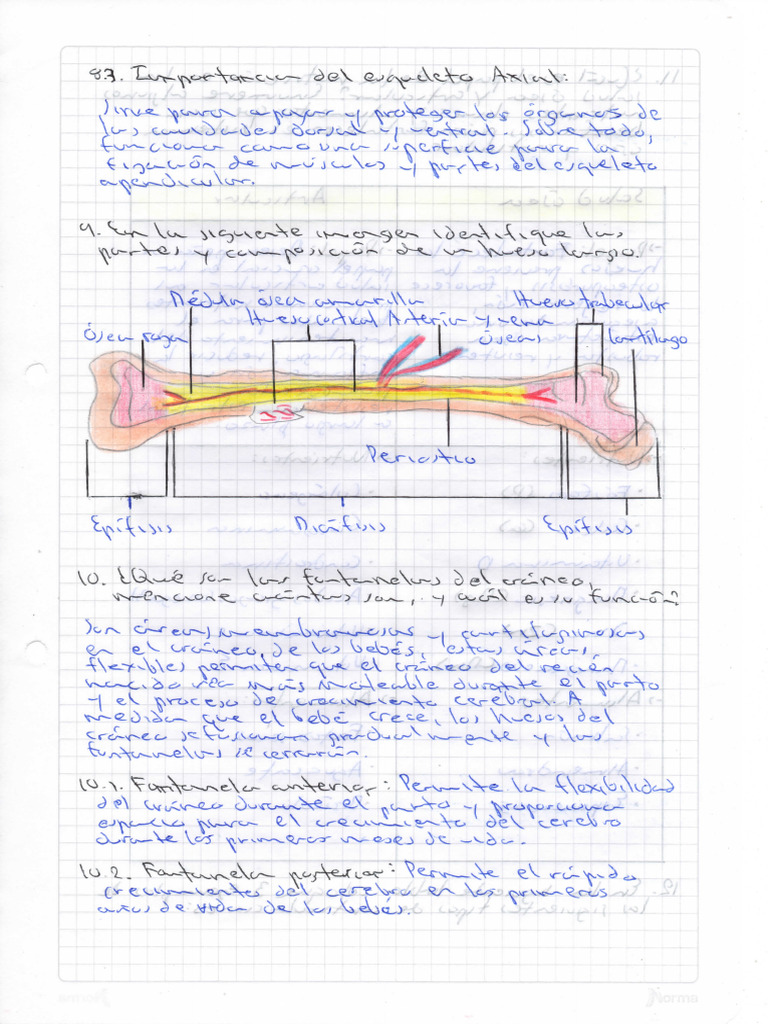 8.3. Importancia del esqueleto Axial:
Sirve para apoyar y proteger los órganos de
las cavidades dorsal y ventral. Sobre todo,
funciona como una superficie para la
fijación de músculos y partes del esqueleto
apendicular.
9. En la siguiente imagen identifique las
partes y composición de un hueso largo.
Médula ósea amarilla
Hueso trabecular
Hueso cortical
Arteria y vena
óseas
Ósea roja
Cartílago
Periostio
Epífisis
Diáfisis
Epífisis
10. ¿Qué son las fontanelas del cráneo,
mencione cuántas son, y cuál es su función?
Son áreas membranosas y cartilaginosas
en el cráneo de los bebés, estas áreas
flexibles permiten que el cráneo del recién
nacido sea más maleable durante el parto
y el proceso de crecimiento cerebral. A
medida que el bebé crece, los huesos del
cráneo se fusionan gradualmente y las
fontanelas se cerrarán.
10.1. Fontanela anterior: Permite la flexibilidad
del cráneo durante el parto y proporciona
espacio para el crecimiento del cerebro
durante los primeros meses de vida.
10.2. Fontanela posterior: Permite el rápido
crecimiento del cerebro en los primeros
años de vida de los bebés.
Norma